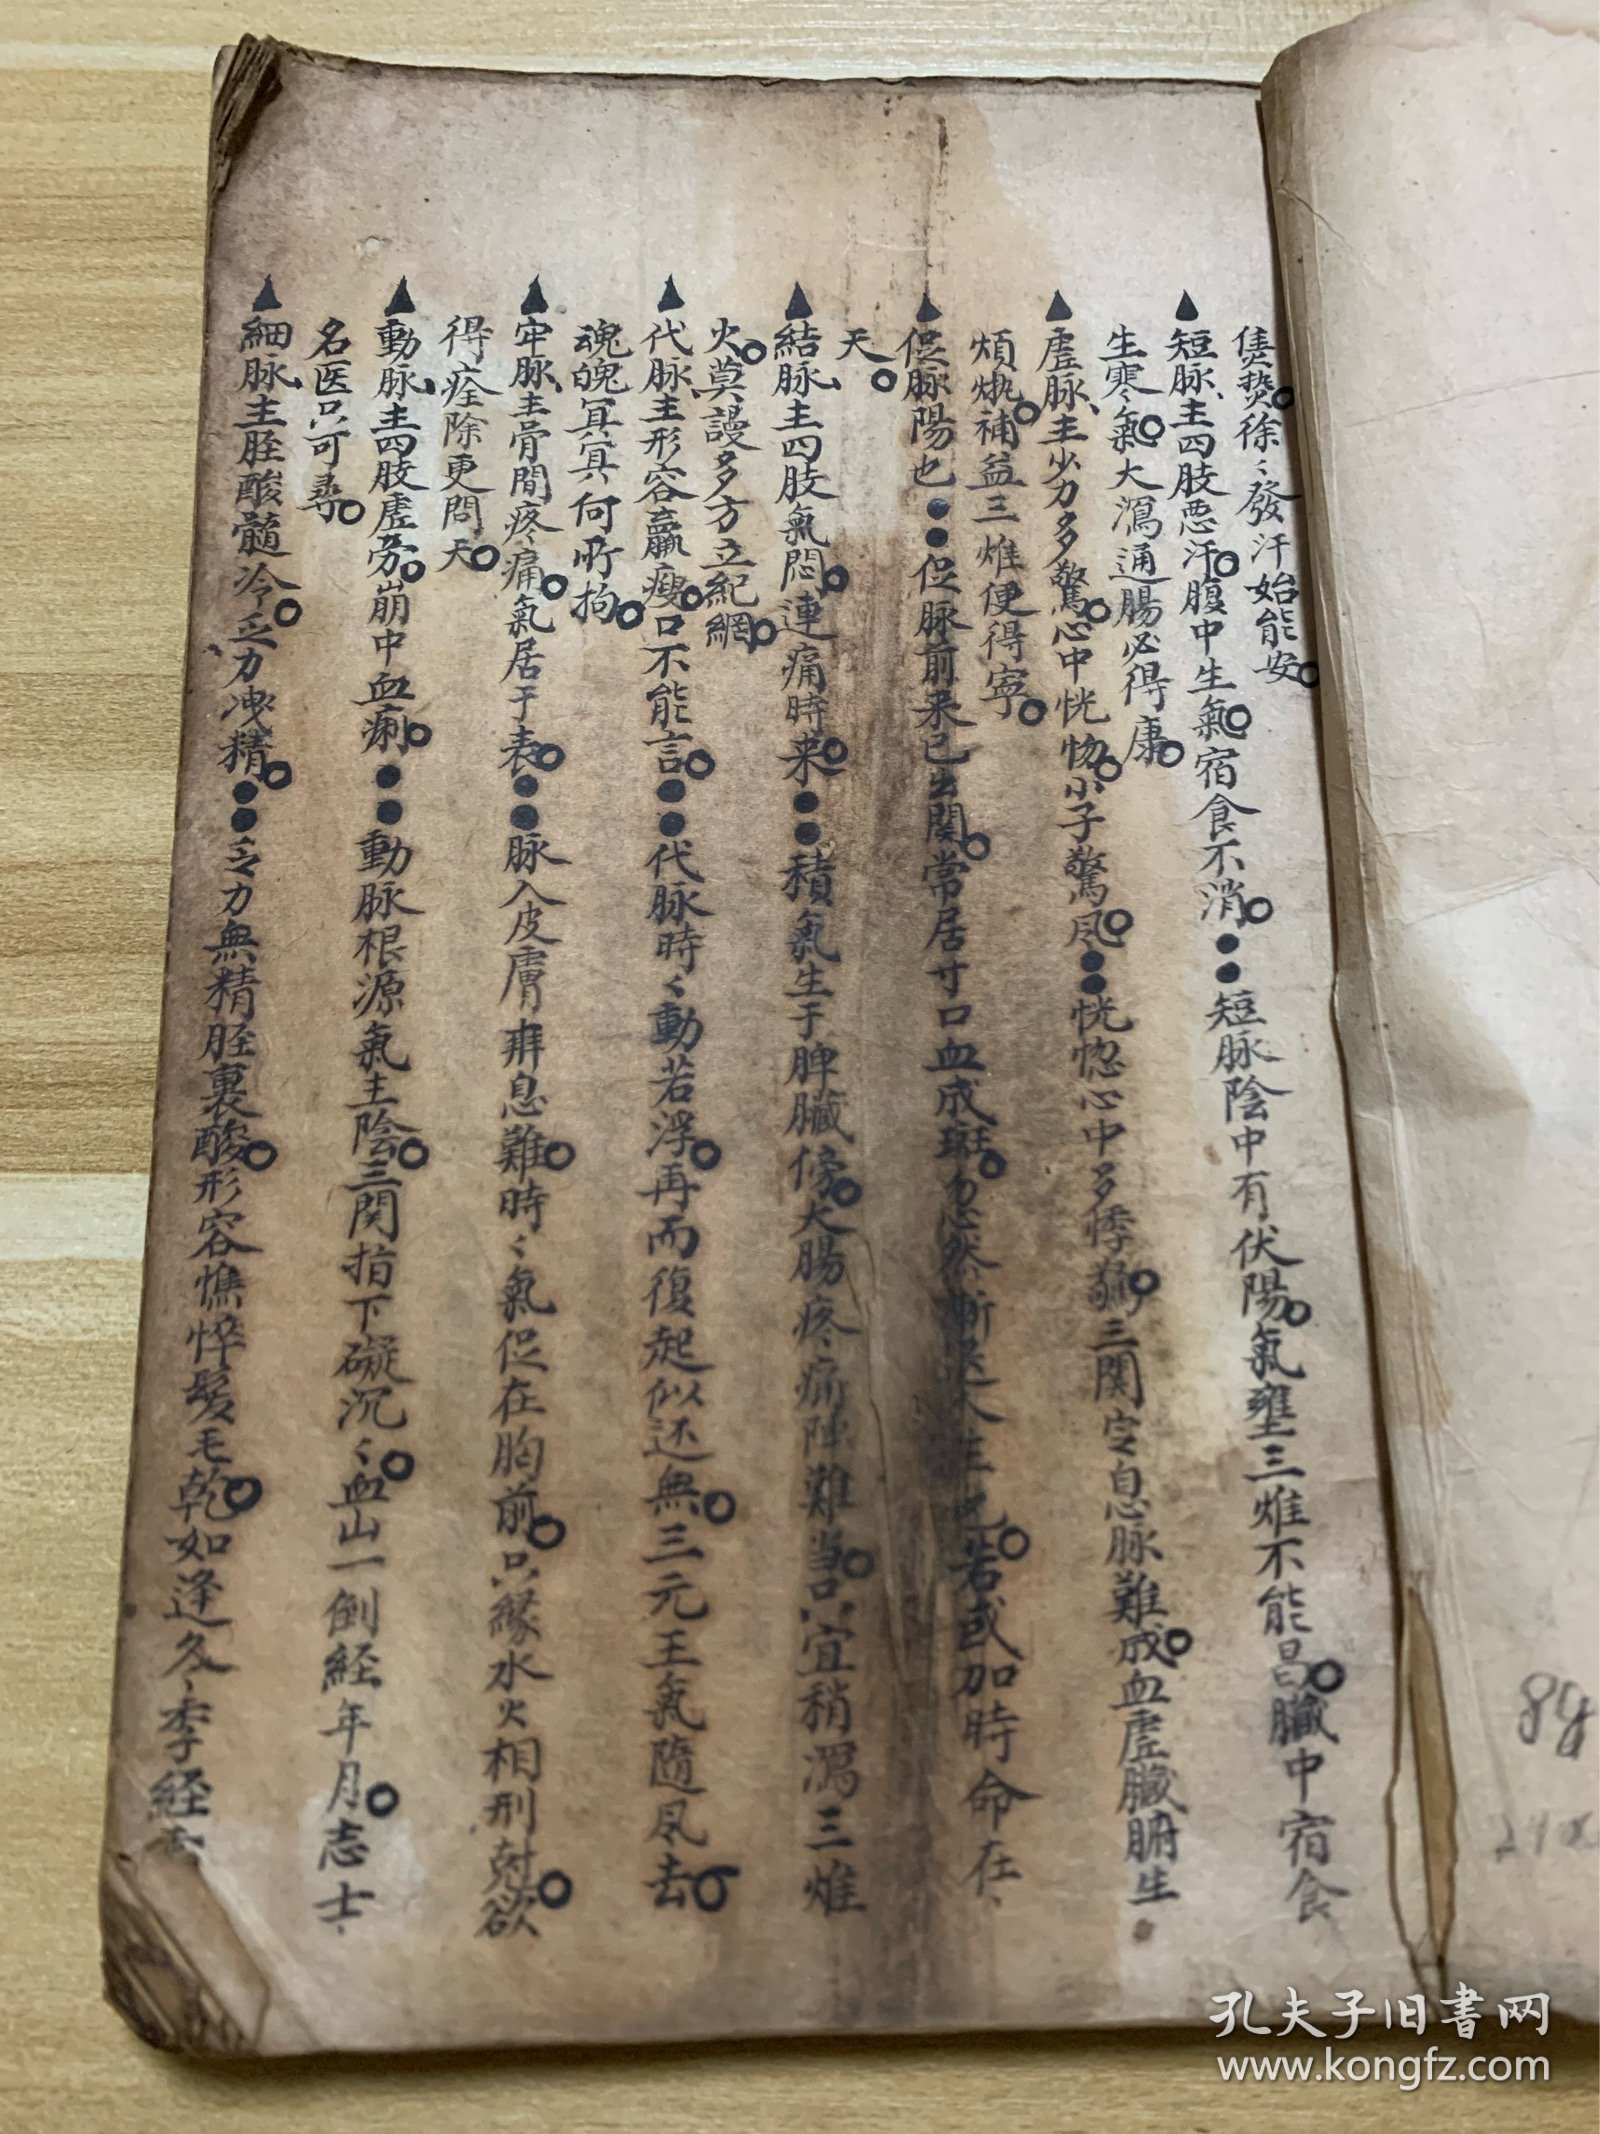 焦熱。徐〻發汗始能安。
▲短脉、主四肢悪汗。腹中生氣。宿食不消。●●短脉陰中有伏陽。氣壅三焦不能昌。臟中宿食
生寒氣。大瀉通腸必得康。
▲虛脉、主少力多驚。心中恍惚。小子驚风。●●恍惚心中多悸驚。三関定息脉難成。血虛臟腑生
煩热。補益三焦便得寧。
▲促脉陽也●●促脉前来已出関。常居寸口血成斑。忽然漸退人生也。若或加時命在、
天。
▲結脉主四肢氣悶。連痛時来。●●積氣生于脾臟傍。大腸疼痛陣難當。宜稍瀉三焦
火。莫謾多方立紀綱。
▲代脉、主形容羸瘦。口不能言。●●代脉時〻動若浮。再而復起似还無。三元王氣隨风去。
魂魄冥冥何所拘。
▲牢脉、主骨間疼痛。氣居于表。●●脉入皮膚痹息難。時〻氣促在胸前。只緣水火相刑尅。欲
得痊除更問天。
▲動脉、主四肢虛劳。崩中血痢。●●動脉根源氣主陰。三関指下礙沉〻。血山一倒経年月。志士、
名医只可尋。
▲細脉、主胫酸髓冷。乏力洩精。●●乏力無精胫裏酸。形容憔悴髮毛乾。如逢冬季経